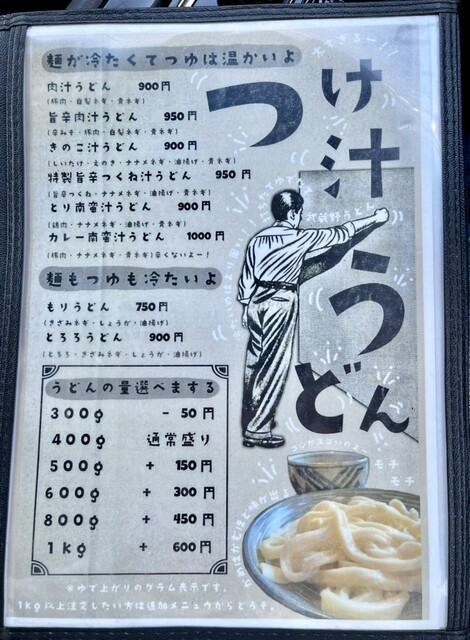 麺が冷たくてつゆは温かいよ
肉汁うどん 900円
(豚肉・自製ネギ・青ネギ)
旨辛肉汁うどん 950円
(辛みそ・豚肉・自製ネギ・青ネギ)
きのこ汁うどん 900円
(しいたけ・えのき・ナナメネギ・油揚げ・青ネギ)
特製旨辛つくね汁うどん 950円
(旨辛つくね・ナナメネギ・油揚げ・青ネギ)
とり南蛮汁うどん 900円
(鶏肉・ナナメネギ・油揚げ・青ネギ)
カレー南蛮汁うどん 1000円
(豚肉・ナナメネギ・青ネギ)辛くないよー!
麺もつゆも冷たいよ
もりうどん 750円
(きざみネギ・しょうが・油揚げ)
とろろうどん 900円
(とろろ・きざみネギ・しょうが・油揚げ)
うどんの量選べまする
300g - 50円
400g 通常盛り
500g + 150円
600g + 300円
800g + 450円
1kg + 600円
※ゆで上がりのグラム表示です。
1kg以上注文したい方は追加メニュウからどうぞ。
つけ汁うどん
武蔵野うどん
コシがスゴいのよ
モチ
モチ